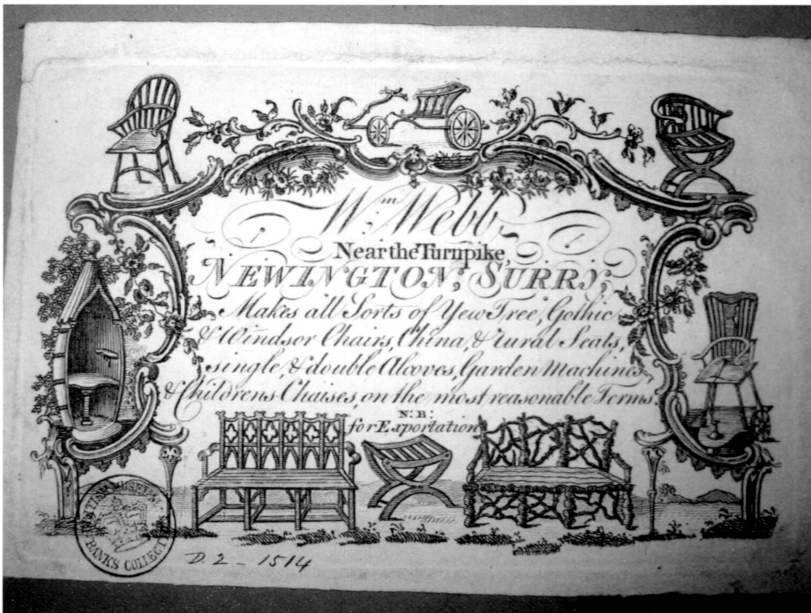 Wm. Webb,
Near the Turnpike,
NEWINGTON, SURRY;
Makes all Sorts of Yew Tree, Gothic
& Windsor Chairs, China, & rural Seats,
single, & double Alcoves, Garden Machines,
& Childrens Chaises, on the most reasonable Terms.
N:B:
for Exportation
BANKS COLLECTION
D.2-1514